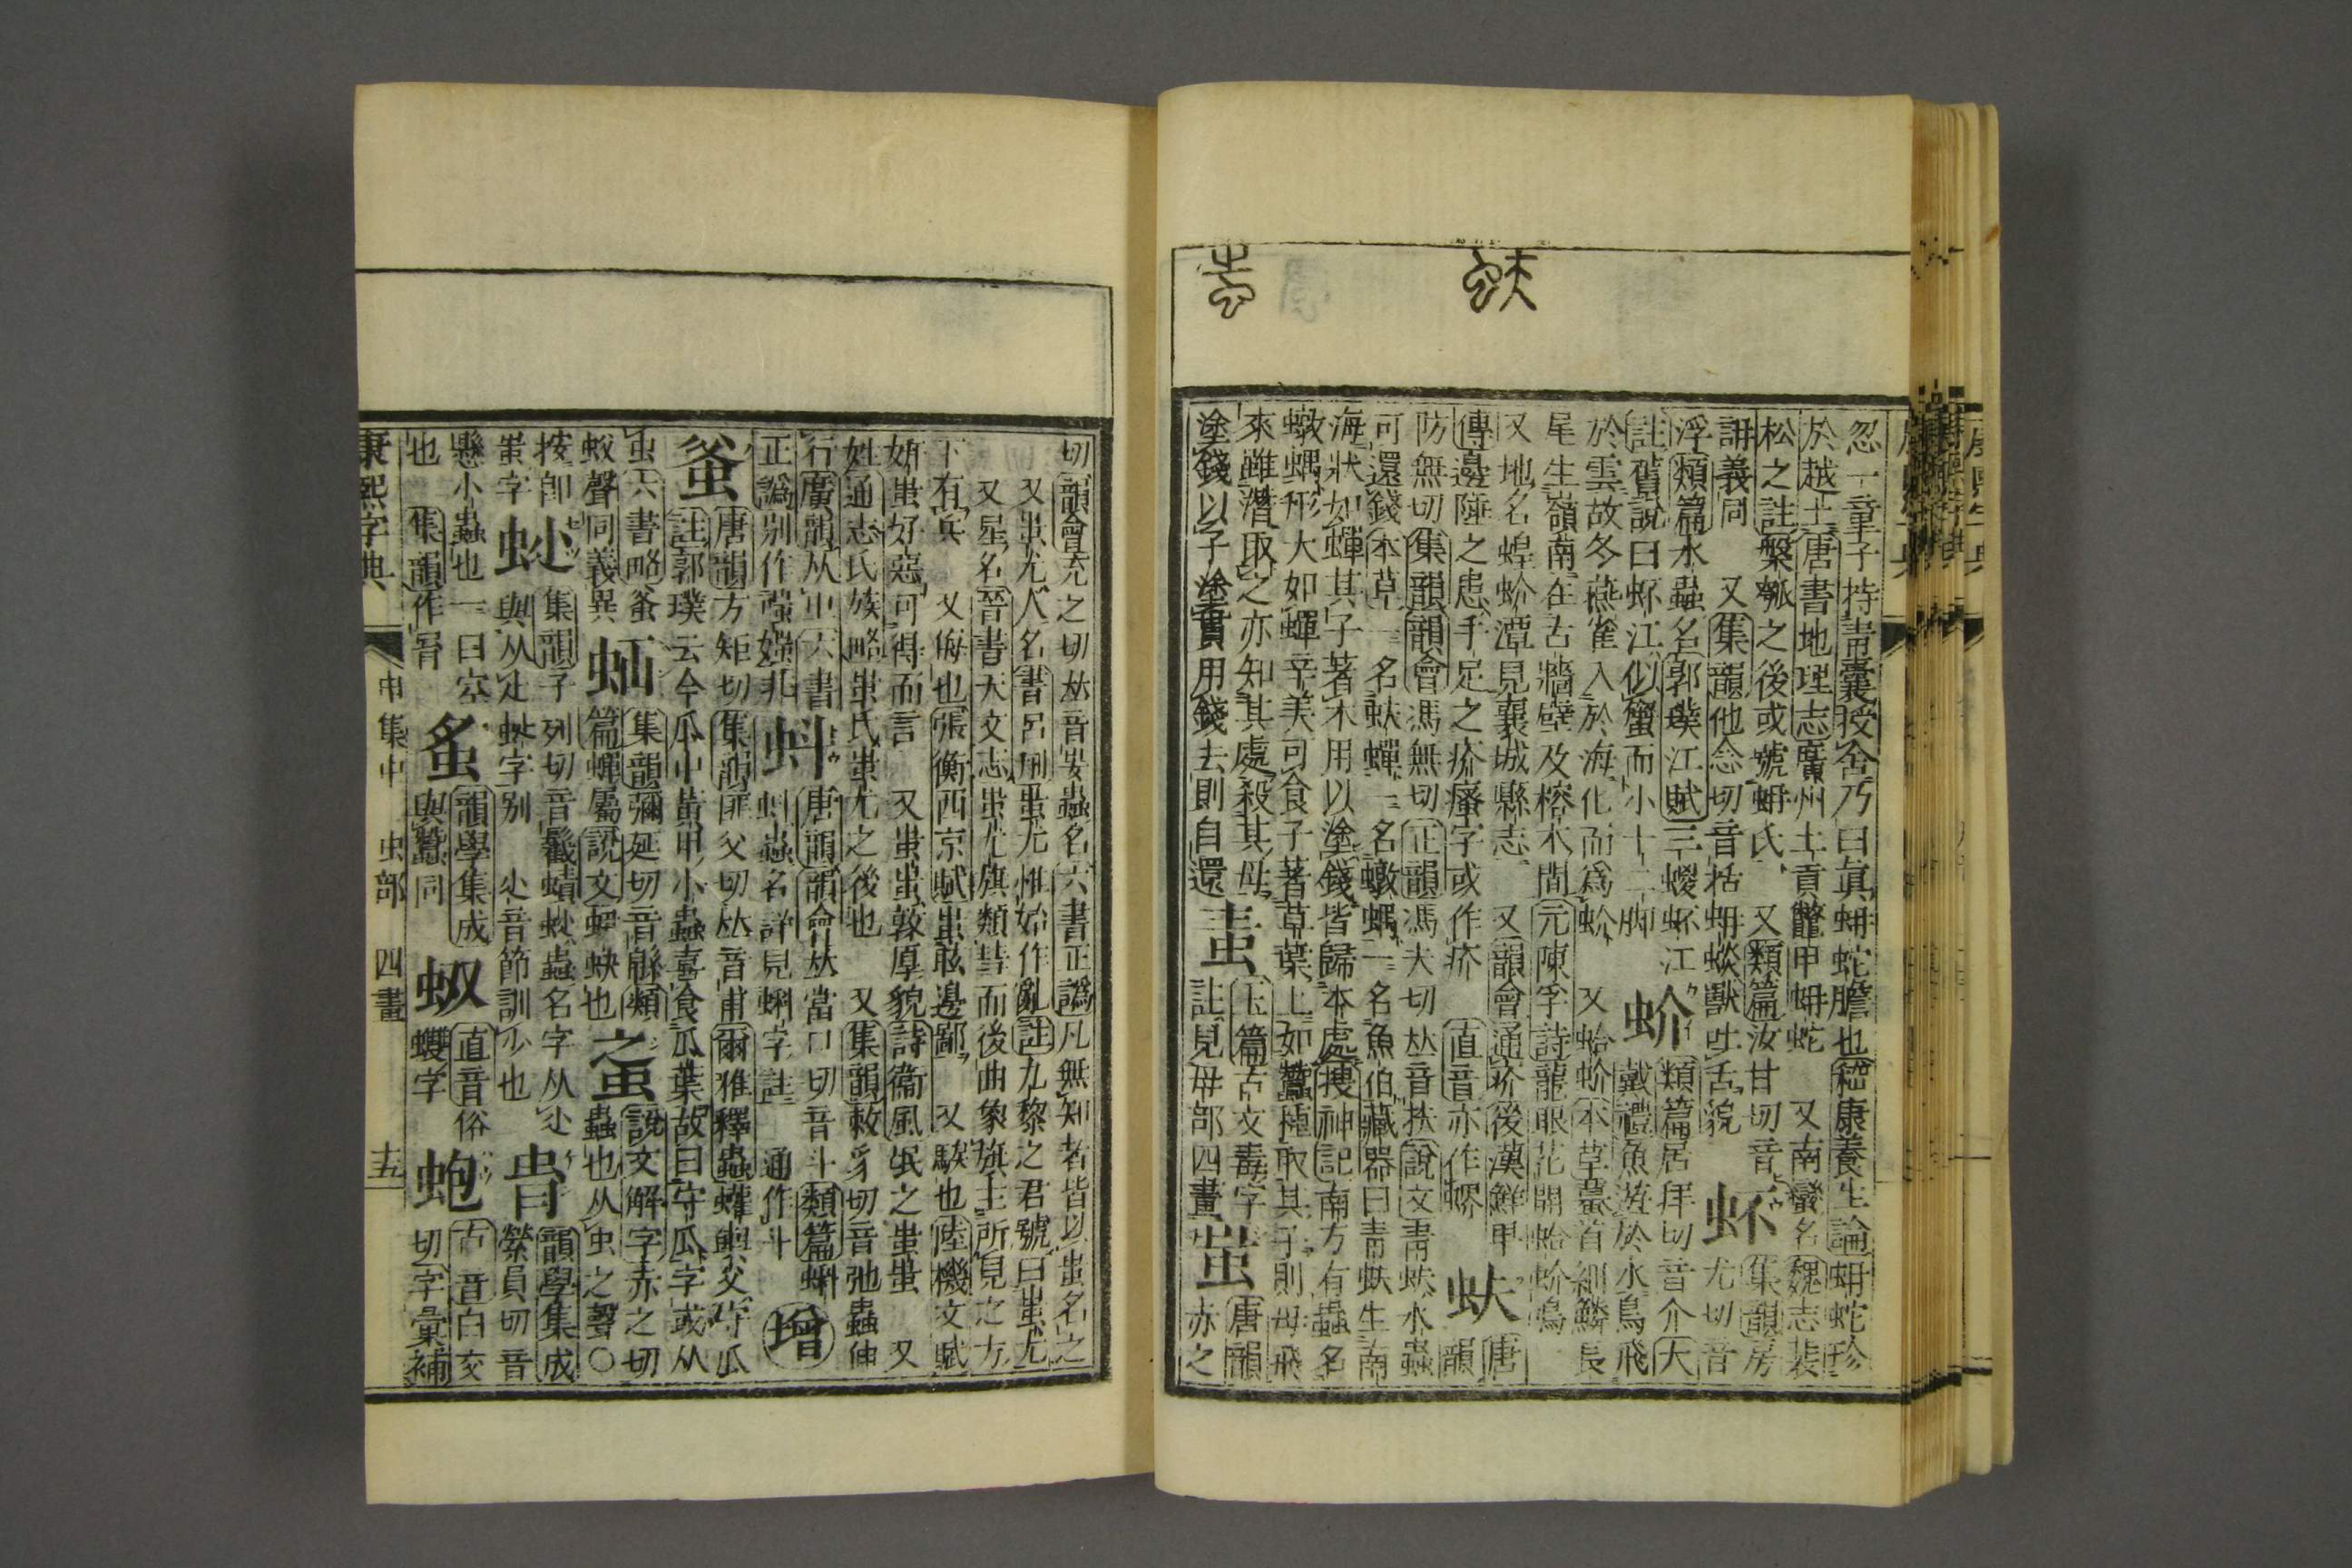 忽一童子持靑囊授含乃曰眞蚺蛇膽也嵇康養生論蚺蛇珍
於越土唐書地理志廣州土貢鼈甲蚺蛇 又南蠻名魏志裴
松之註槃瓠之後或號蚺氏 又類篇汝甘切音
訷義同 又集韻他念切音栝蚺蛟獸吐舌貌
𧉈
集韻房
尤切音
浮類篇水蟲名郭璞江賦三蝬𧉈江
註舊說曰𧉈江似蟹而小十二脚
蚧
類篇居拜切音介大
戴禮魚遊於水鳥飛
於雲故冬燕雀入於海化而爲蚧 又蛤蚧本草蟇首細鱗長
尾生嶺南在古牆壁及榕木閒 元陳孚詩龍眼花開蛤蚧鳴
又地名蝗蚧潭見襄城縣志 又韻會通疥後漢鮮卑
傳邊陲之患手足之疥瘙字或作疥 直音亦作螺
蚨
唐
韻
防無切集韻韻會馮無切正韻馮夫切𠀤音扶說文靑蚨水蟲
可還錢本草一名蚨蟬一名𧑒𧍪一名魚伯藏器曰靑蚨生南
海狀如蟬其子著木用以塗錢皆歸本處搜神記南方有蟲名
𧑒𧍪形大如蟬辛美可食子著草葉上如蠶種取其子則母飛
來雖潛取之亦知其處殺其母
塗錢以子塗貫用錢去則自還
玉篇古文毒字
註見毋部四畫
蚩
唐韻
赤之
切韻會充之切𠀤音媸蟲名六書正譌凡無知者皆以蚩名之
又蚩尤人名書呂刑蚩尤惟始作亂註九黎之君號曰蚩尤
又星名晉書天文志蚩尤旗類彗而後曲象旗主所見之方
下有兵 又侮也張衡西京賦蚩眩邊鄙 又騃也陸機文賦
妍蚩好惡可得而言 又蚩蚩敦厚貌詩衞風氓之蚩蚩 又
姓通志氏族略蚩氏蚩尤之後也 又集韻敕豸切音弛蟲伸
行廣韻从屮六書
正譌別作𧉪媸非
蚪
唐韻韻會𠀤當口切音斗類篇蝌
蚪蟲名詳見蝌字註 通作斗
增
蚠
唐韻方矩切集韻匪父切𠀤音甫爾雅釋蟲蠸輿父守瓜
註郭璞云今瓜中黃甲小蟲喜食瓜葉故曰守瓜字或从
虫六書略蚠
蚥聲同義異
集韻彌延切音緜類
篇蟬屬說文蚍蚗也
說文解字赤之切
蟲也从虫之聲○
按卽
蚩字
集韻子列切音䘁蜻䖢蟲名字从
與从 字別 音節訓少也
韻學集成
縈員切音
懸小蟲也一曰空
也 集韻作肙
韻學集成
與蠶同
直音俗
蠼字
蚫
古音白交
切字彙補
康熙字典
申集中 虫部 四畫
十五